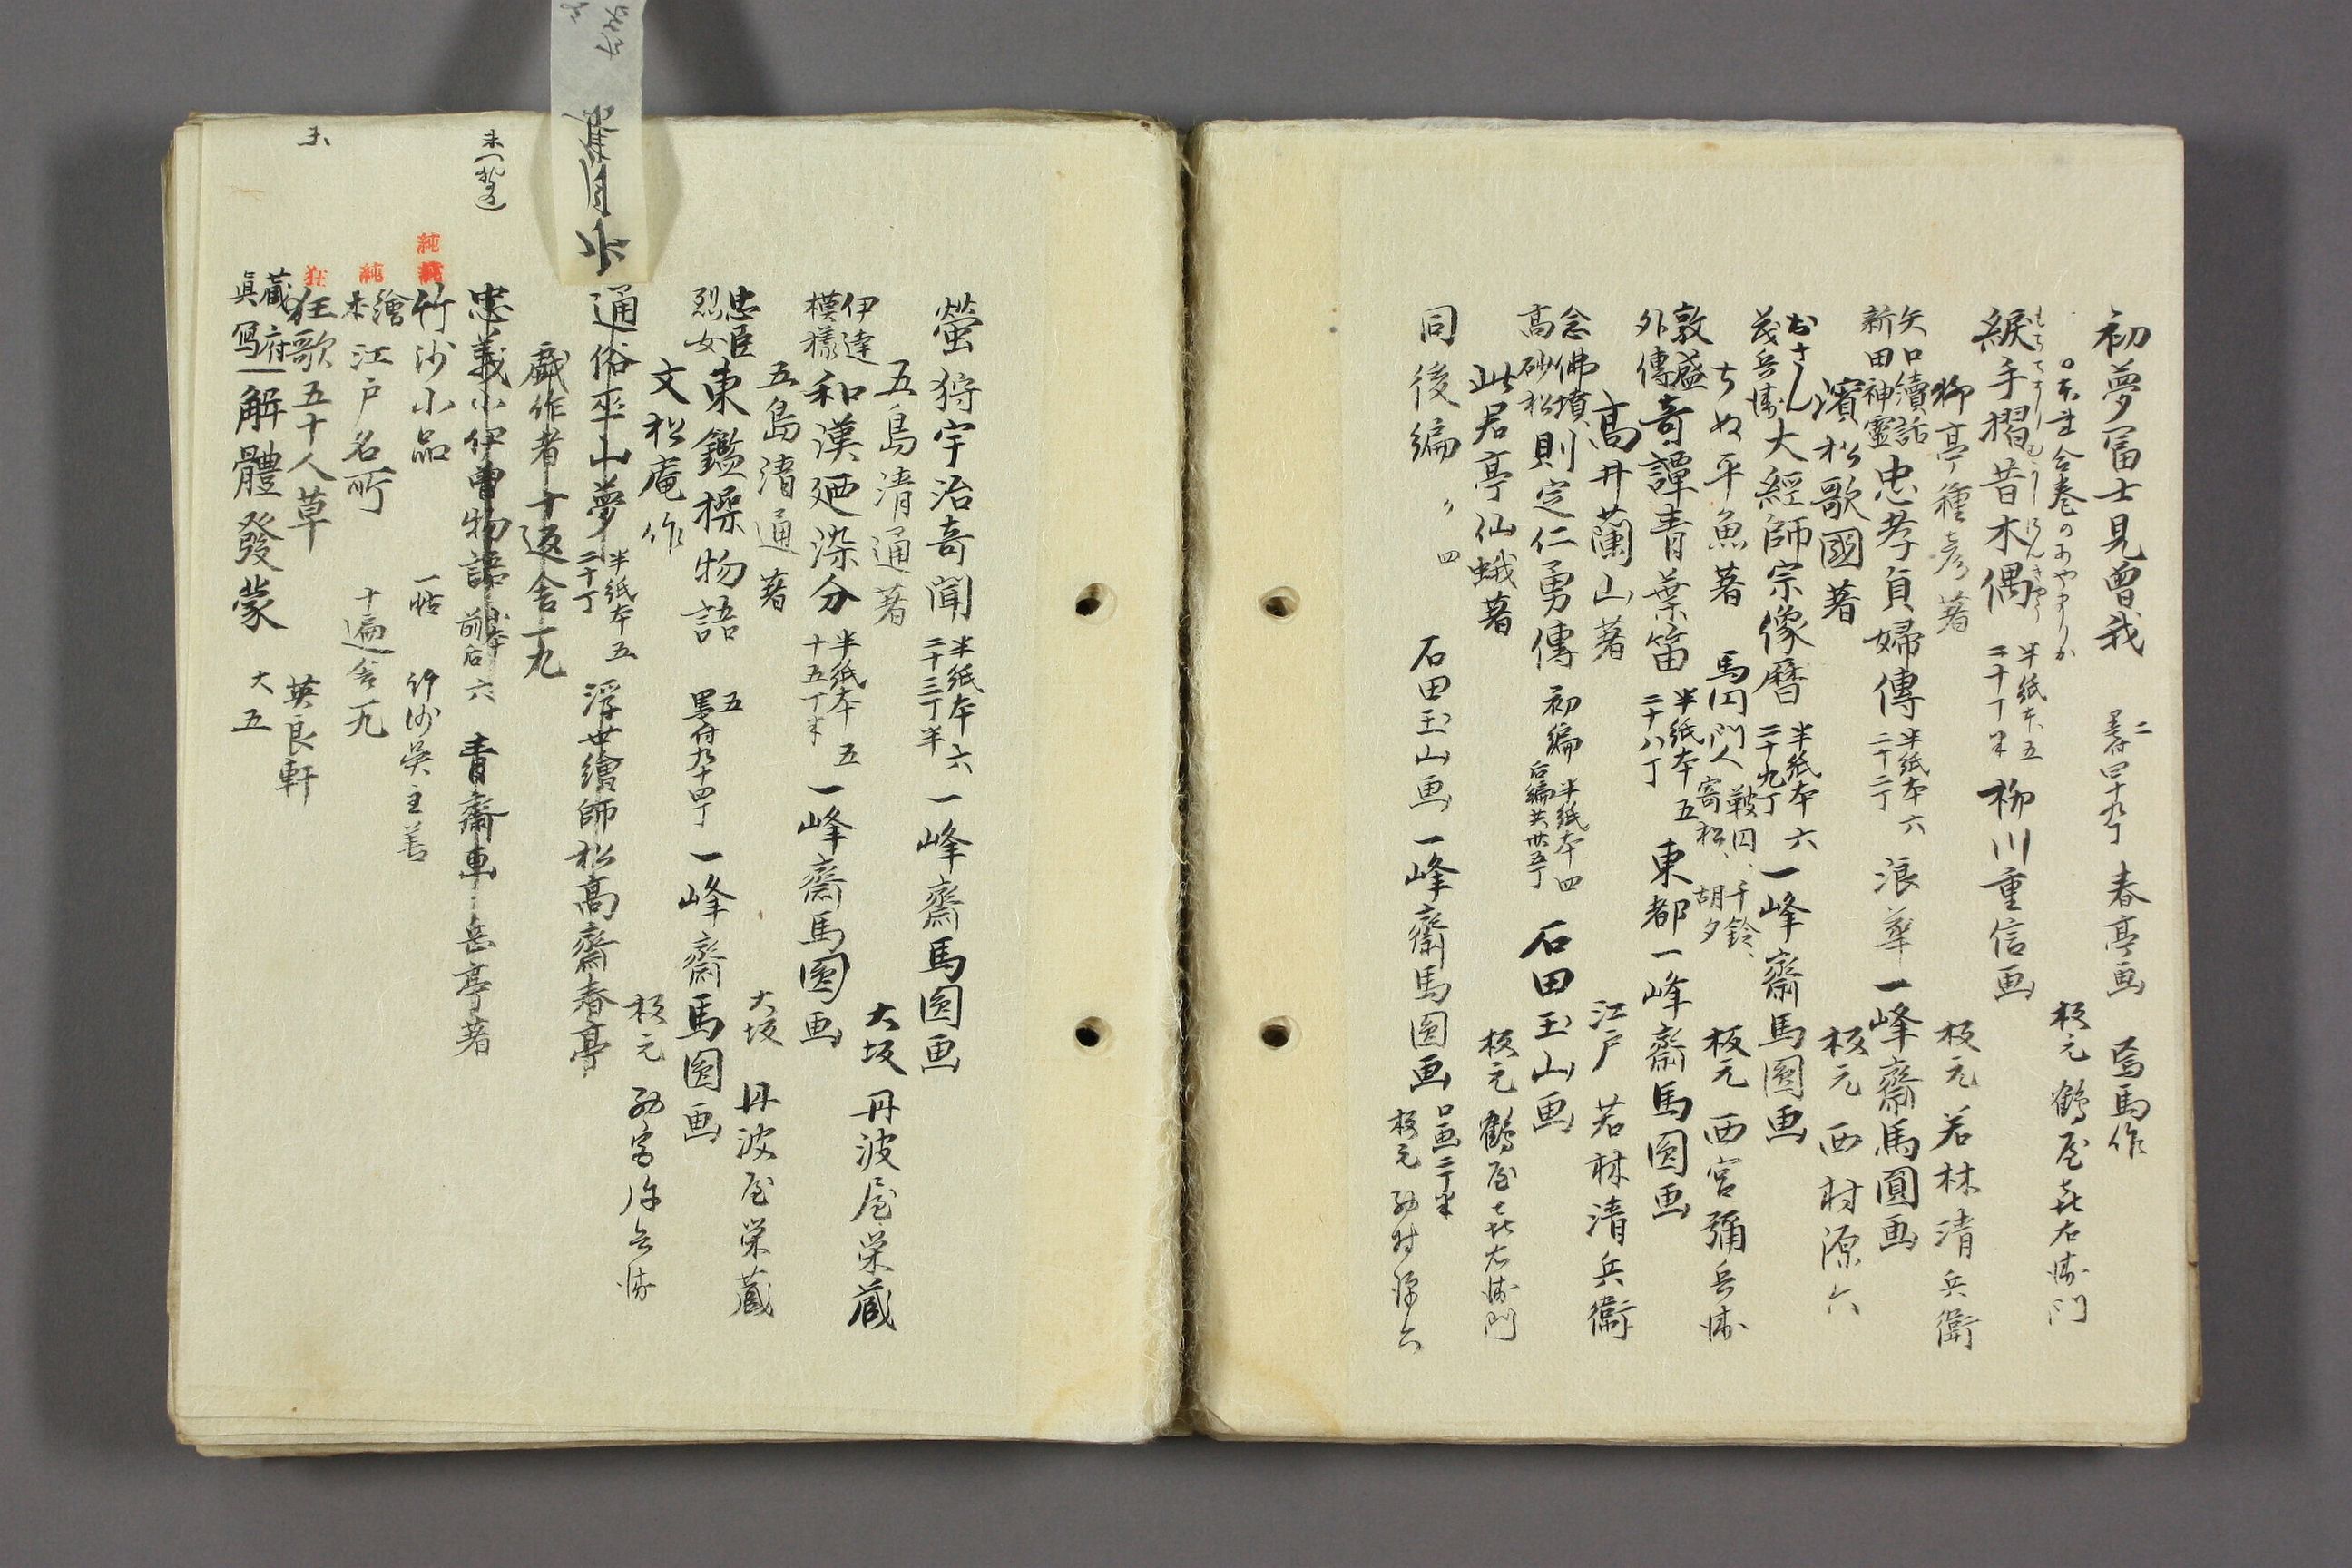 初夢冨士見曽我 二 墨付四十九丁 春亭画 焉馬作
板元 鶴屋㐂右衛門
綟手摺昔木偶 半紙本五 二十丁半 柳川重信画
柳亭種彦著 板元 若林清兵衛
矢口續話 新田神靈 忠孝貞婦傳 半紙本六 二十二丁 浪華 一峰齋馬圓画
濱松歌國著 板元 西村源六
おさん 茂兵衛 大經師宗像暦 半紙本六 二十九丁 一峰齋馬圓画
ちぬ平魚著 馬円門人 鞍円、千鈴、寄松、胡夕 板元 西宮彌兵衛
敦盛外傳 奇譚青葉笛 半紙本五 二十八丁 東都 一峰齋馬圓画
高井蘭山著 江戸 若林清兵衛
念佛墳 高砂松 則定仁勇傳 初編 半紙本四 石田玉山画
此君亭仙蛾著 板元 鶴屋㐂右衛門
同後編 〃 四 石田玉山画 一峰齋馬圓画 口画二丁半 板元 西村源六
螢狩宇治奇聞 半紙本六 二十三丁半 一峰齋馬圓画
五島清通著 大坂 丹波屋栄蔵
伊達模様 和漢廼染分 半紙本五 十五丁半 一峰齋馬圓画
五島清通著 大坂 丹波屋栄蔵
忠臣烈女 東鑑操物語 五 墨付九十四丁 一峰齋馬圓画
文松庵作 板元 西宮弥兵衛
通俗巫山夢 半紙本五 二十丁 浮世繪師松高齋春亭
戯作者十返舎一九
忠義小伊曽物語 前后六 青齋 岳亭著
竹沙小品 一帖 竹沙呉主善
繪本 江戸名所 十遍舎一九
狂歌五十人草 英良軒
蔵府真写 解體發蒙 大五
未
純
純
狂